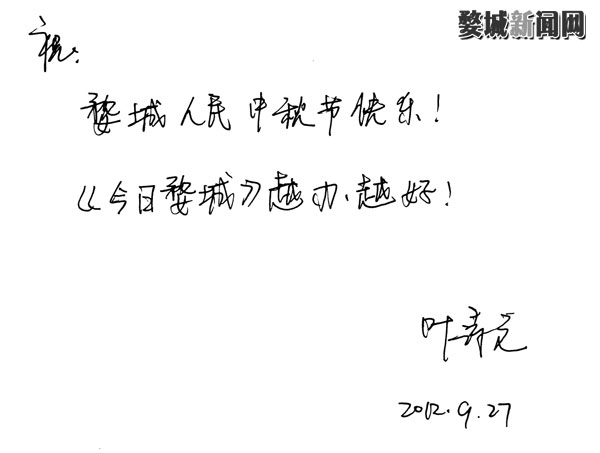 婺城新闻网
祝:
婺城人民中秋节快乐!
《今日婺城》越办越好!
叶寿
2012.9.27